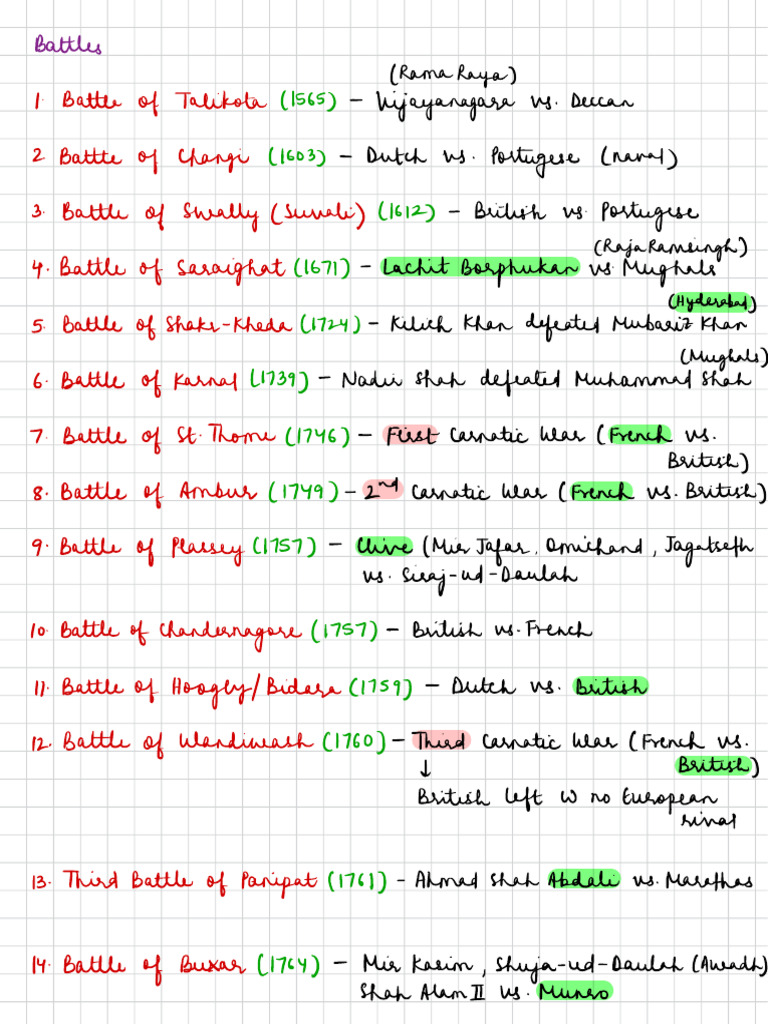 Battles
(Rama Raya)
1. Battle of Talikota (1565) – Vijayanagara vs. Deccan
2 Battle of Changi (1603) – Dutch vs. Portugese (naval)
3. Battle of Swally (Suvali) (1612) – British vs. Portugese
(Raja Ramsingh)
4. Battle of Saraighat (1671) – Lachit Borphukan vs Mughals
(Hyderabad)
5. Battle of Shakr-Kheda (1724) – Kilich Khan defeated Mubariz Khan
(Mughals)
6. Battle of Karnal (1739) – Nadir Shah defeated Muhammad Shah
7. Battle of St. Thome (1746) – First Carnatic War (French vs.
British)
8. Battle of Ambur (1749) – 2nd Carnatic War (French vs. British)
9. Battle of Plassey (1757) – Clive (Mir Jafar, Omichand, Jagatseth
vs. Siraj-ud-Daulah
10. Battle of Chandernagore (1757) – British vs. French
11. Battle of Hoogly/Bidara (1759) – Dutch vs. British
12. Battle of Wandiwash (1760) – Third Carnatic War (French vs.
British)
↓
British left w no European
rival
13. Third Battle of Panipat (1761) – Ahmad Shah Abdali vs. Marathas
14. Battle of Buxar (1764) – Mir Kasim, Shuja-ud-Daulah (Awadh)
Shah Alam II vs. Munro